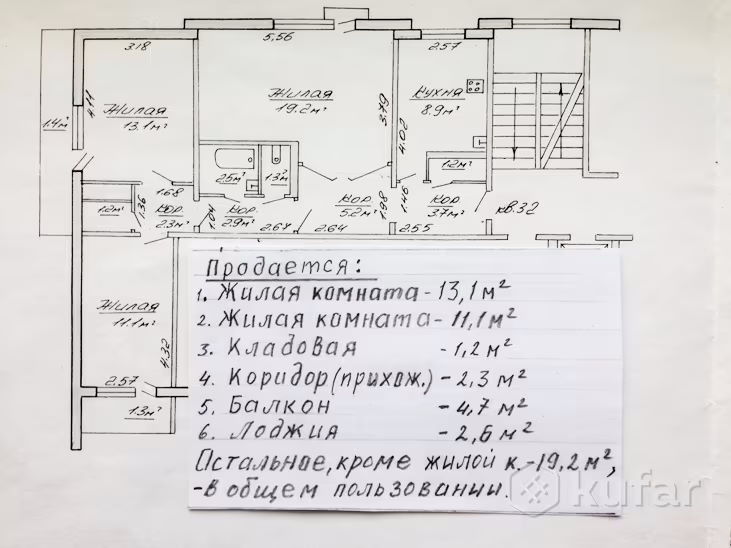 3.18
5,56
2.57
Жилая
13.1м²
4.11
1.4м²
Жилая
19.2м²
3.79
Кухня
8.9м²
4.02
2.5м²
1.3м²
1.2м²
1.68
1.36
1.2м²
Кор.
2.3м²
1.04
Кор.
2.9м²
2.67
2.64
Кор.
5.2м²
1.98
1.46
Кор.
3.7м²
2.55
кв.32
Жилая
11.1м²
4.32
2.57
1.3м²
Продается:
1. Жилая комната - 13,1 м²
2. Жилая комната - 11,1 м²
3. Кладовая - 1,2 м²
4. Коридор (прихож.) - 2,3 м²
5. Балкон - 4,7 м²
6. Лоджия - 2,6 м²
Остальное, кроме жилой к. - 19,2 м²,
- в общем пользовании.
kufar